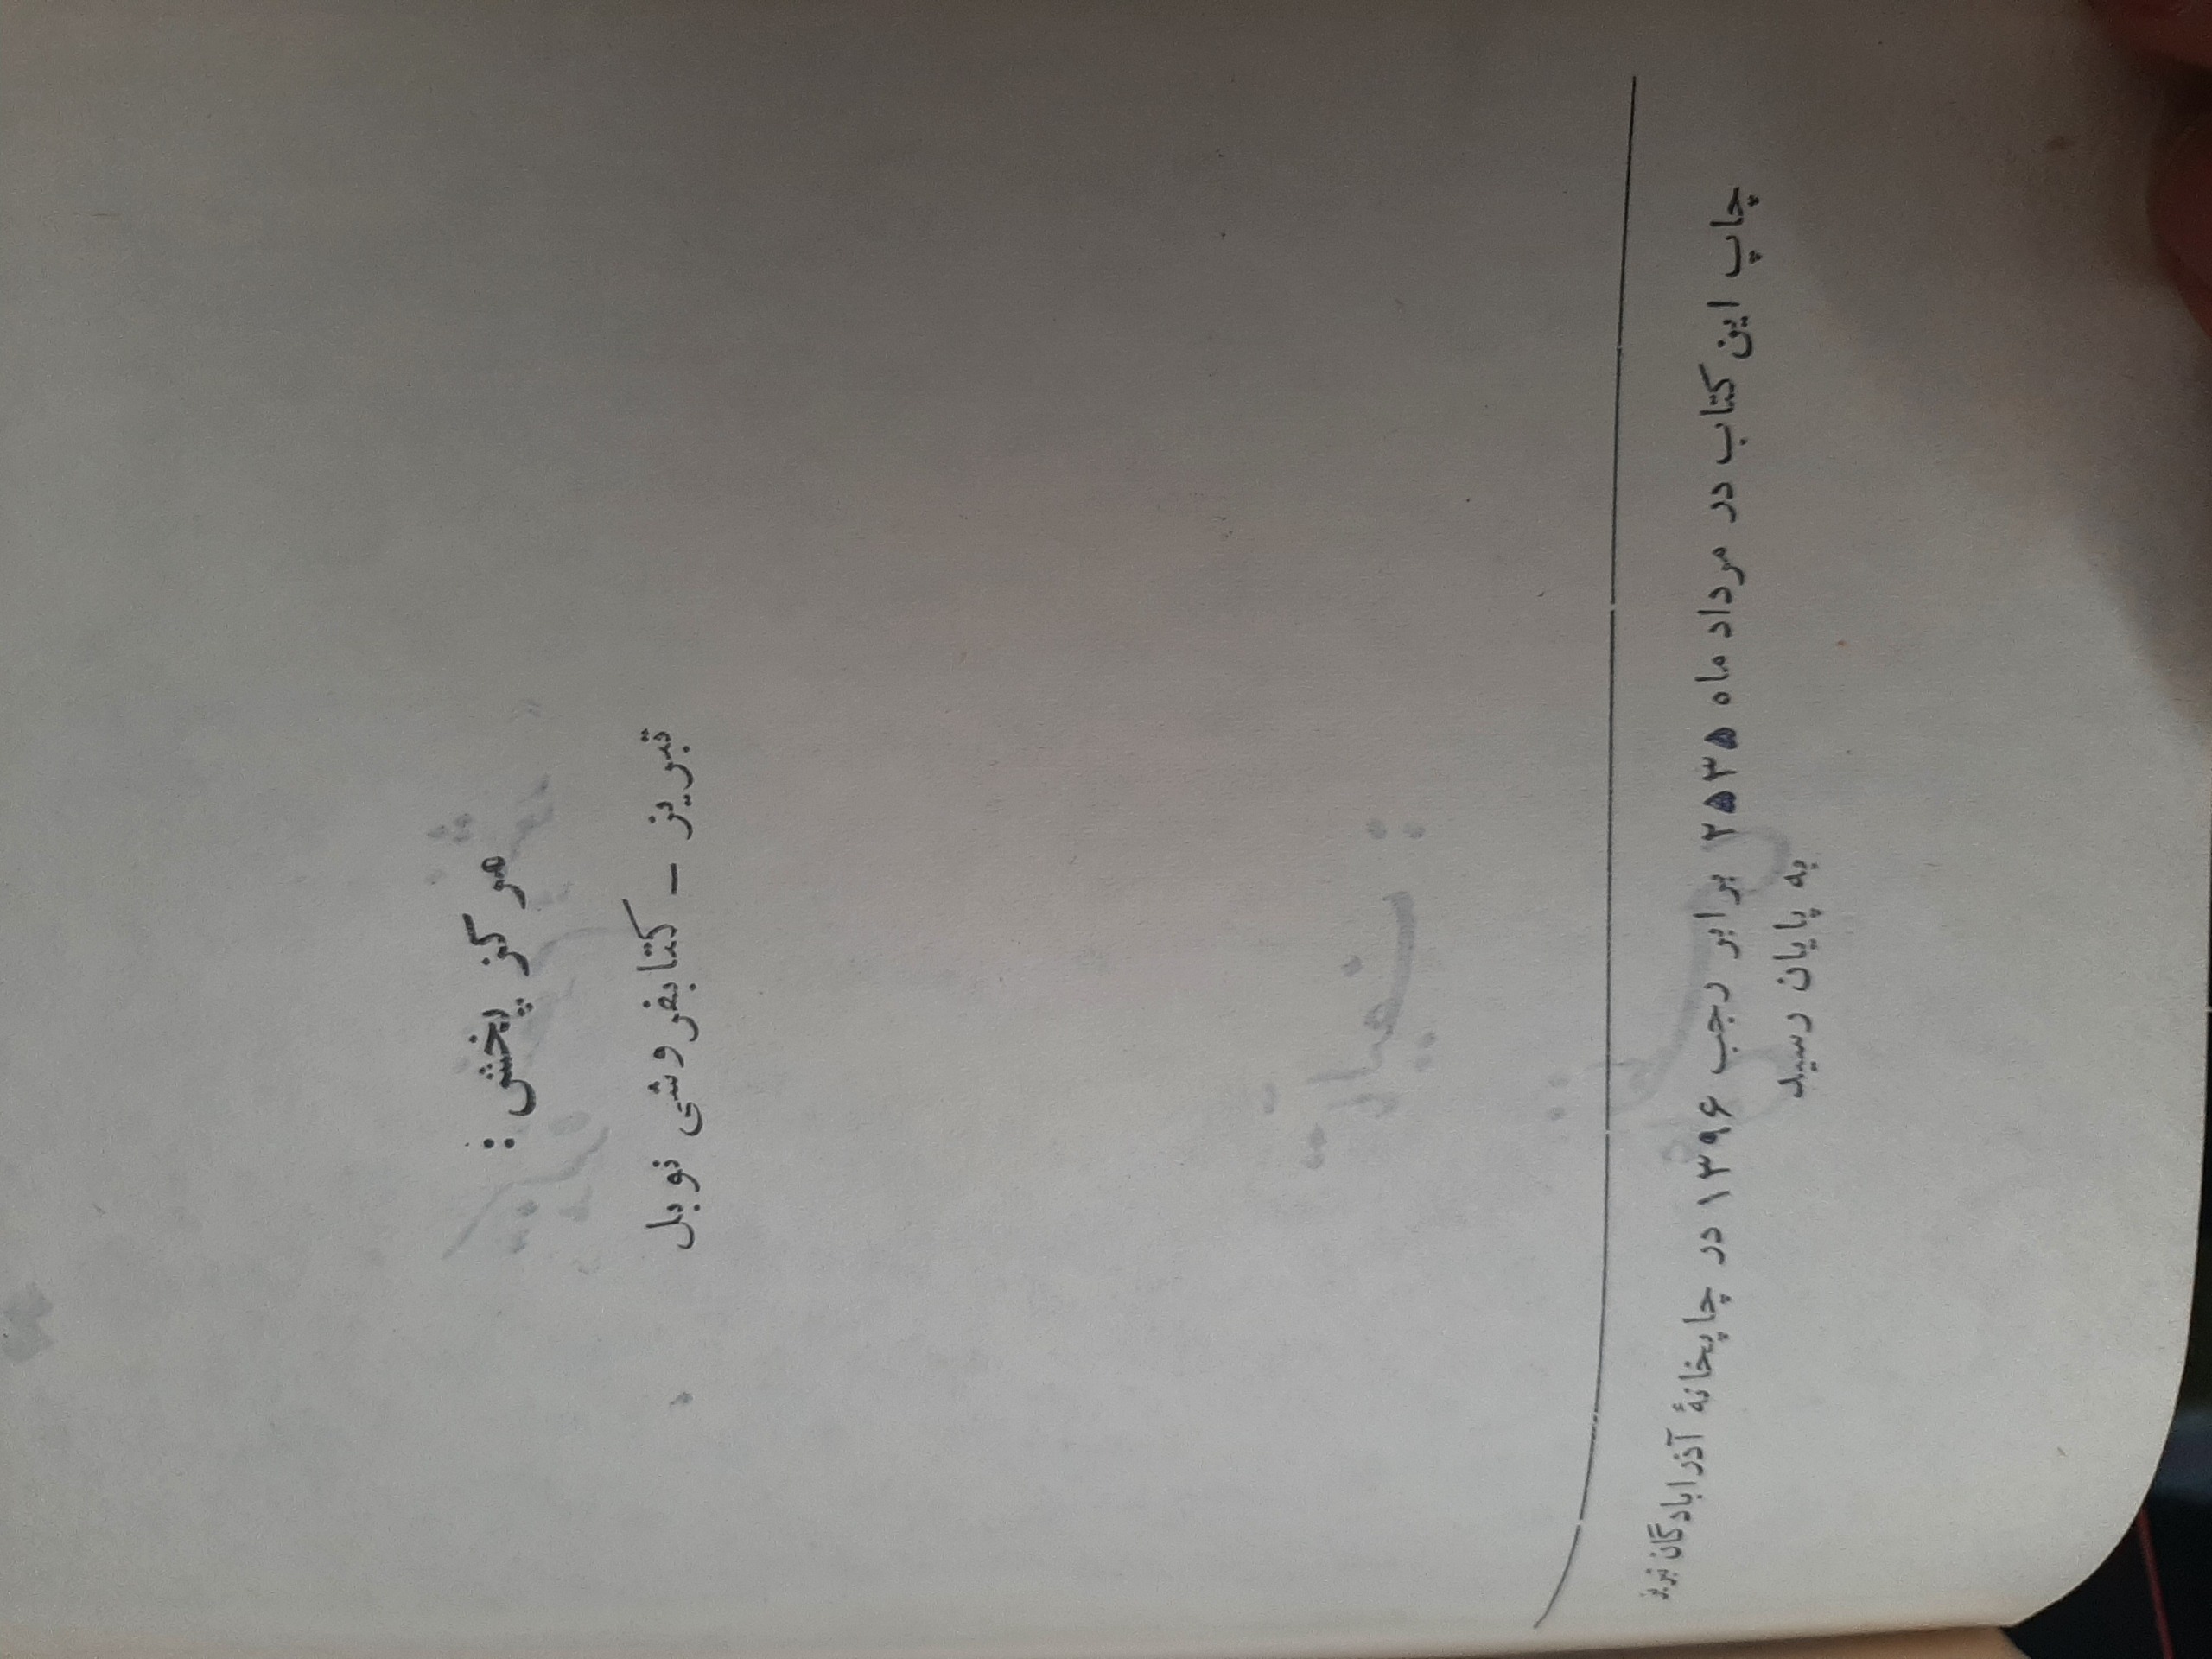 مرکز پخش :
تبریز - کتابفروشی نوبل
چاپ این کتاب در مرداد ماه ۲۵۳۵ برابر رجب ۱۳۹۶ در چاپخانهٔ آذرابادگان تبریز
به پایان رسید